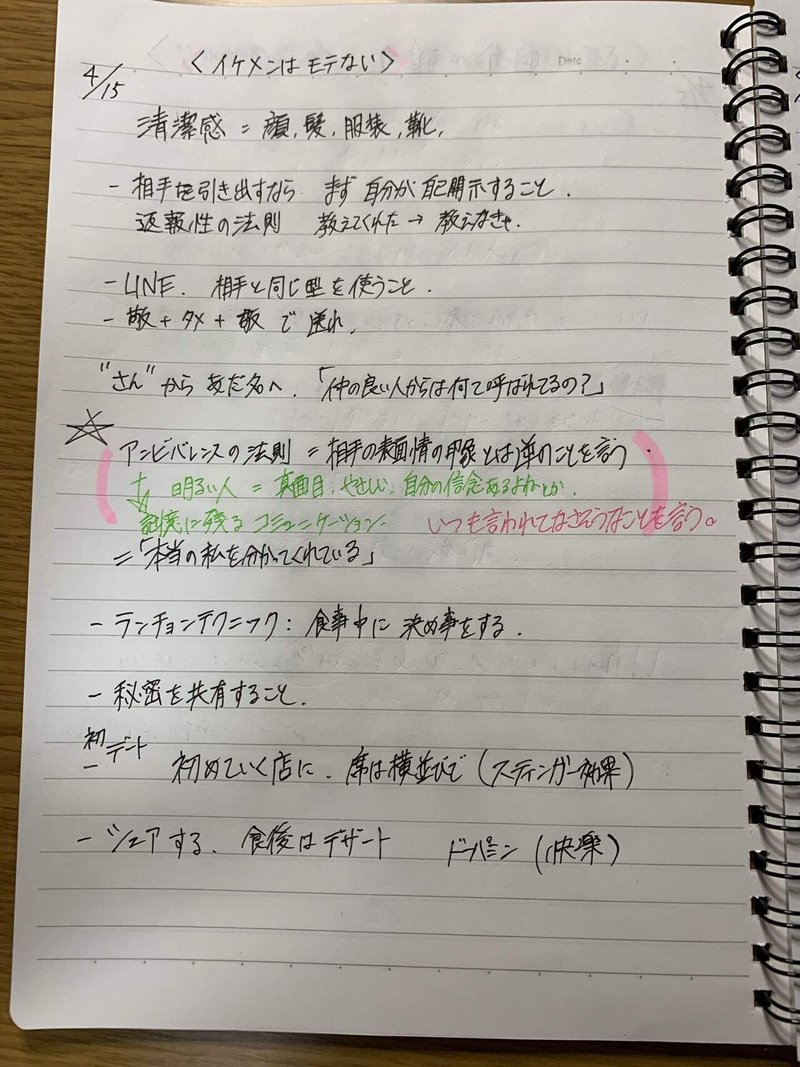 Date
4/15
<イケメンはモテない>
清潔感 = 顔, 髪, 服装, 靴,
- 相手を引き出すなら まず 自分が自己開示すること.
返報性の法則 教えてくれた → 教えなきゃ.
- LINE. 相手と同じ型を使うこと.
- 敬 + タメ + 敬 で 送れ,
"さん"から あだ名へ.「仲の良い人からは何て呼ばれてるの?」
☆ アンビバレンスの法則 = 相手の表面情の印象とは逆のことを言う.
明るい人 = 真面目. やさしい. 自分の信念あるよねとか.
記憶に残るコミュニケーション. いつも言われてなさそうなことを言う。
=「本当の私を分かってくれている」
- ランチョンテクニック: 食事中に 決め事をする.
- 秘密を共有すること.
初デート
- 初めていく店に. 席は横並びで (スティンガー効果)
- シェアする. 食後はデザート ドーパミン (快楽)